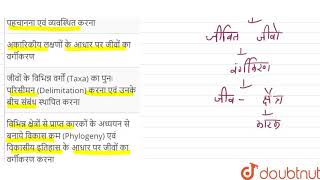 पहचानना एवं व्यवस्थित करना
अकारिकीय लक्षणों के आधार पर जीवों का
वर्गीकरण
जीवों के विभिन्न वर्गों (Taxa) का पुनः
परिसीमन (Delimitation) करना एवं उनके
बीच संबंध स्थापित करना
विभिन्न क्षेत्रों से प्राप्त कारकों के अध्ययन से
बनाये विकास क्रम (Phylogeny) एवं
विकासीय इतिहास के आधार पर जीवों का
वर्गीकरण करना
जीवित जीवो
वर्गीकरण
जीव - क्षेत्र
कारक
doubtnut